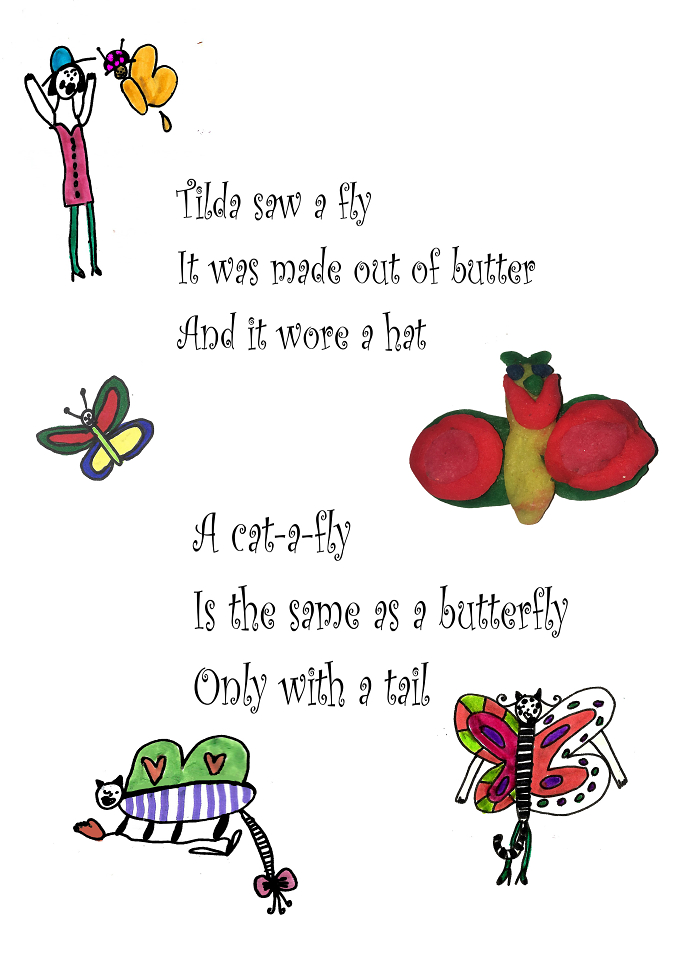 Tilda saw a fly
It was made out of butter
And it wore a hat
A cat-a-fly
Is the same as a butterfly
Only with a tail